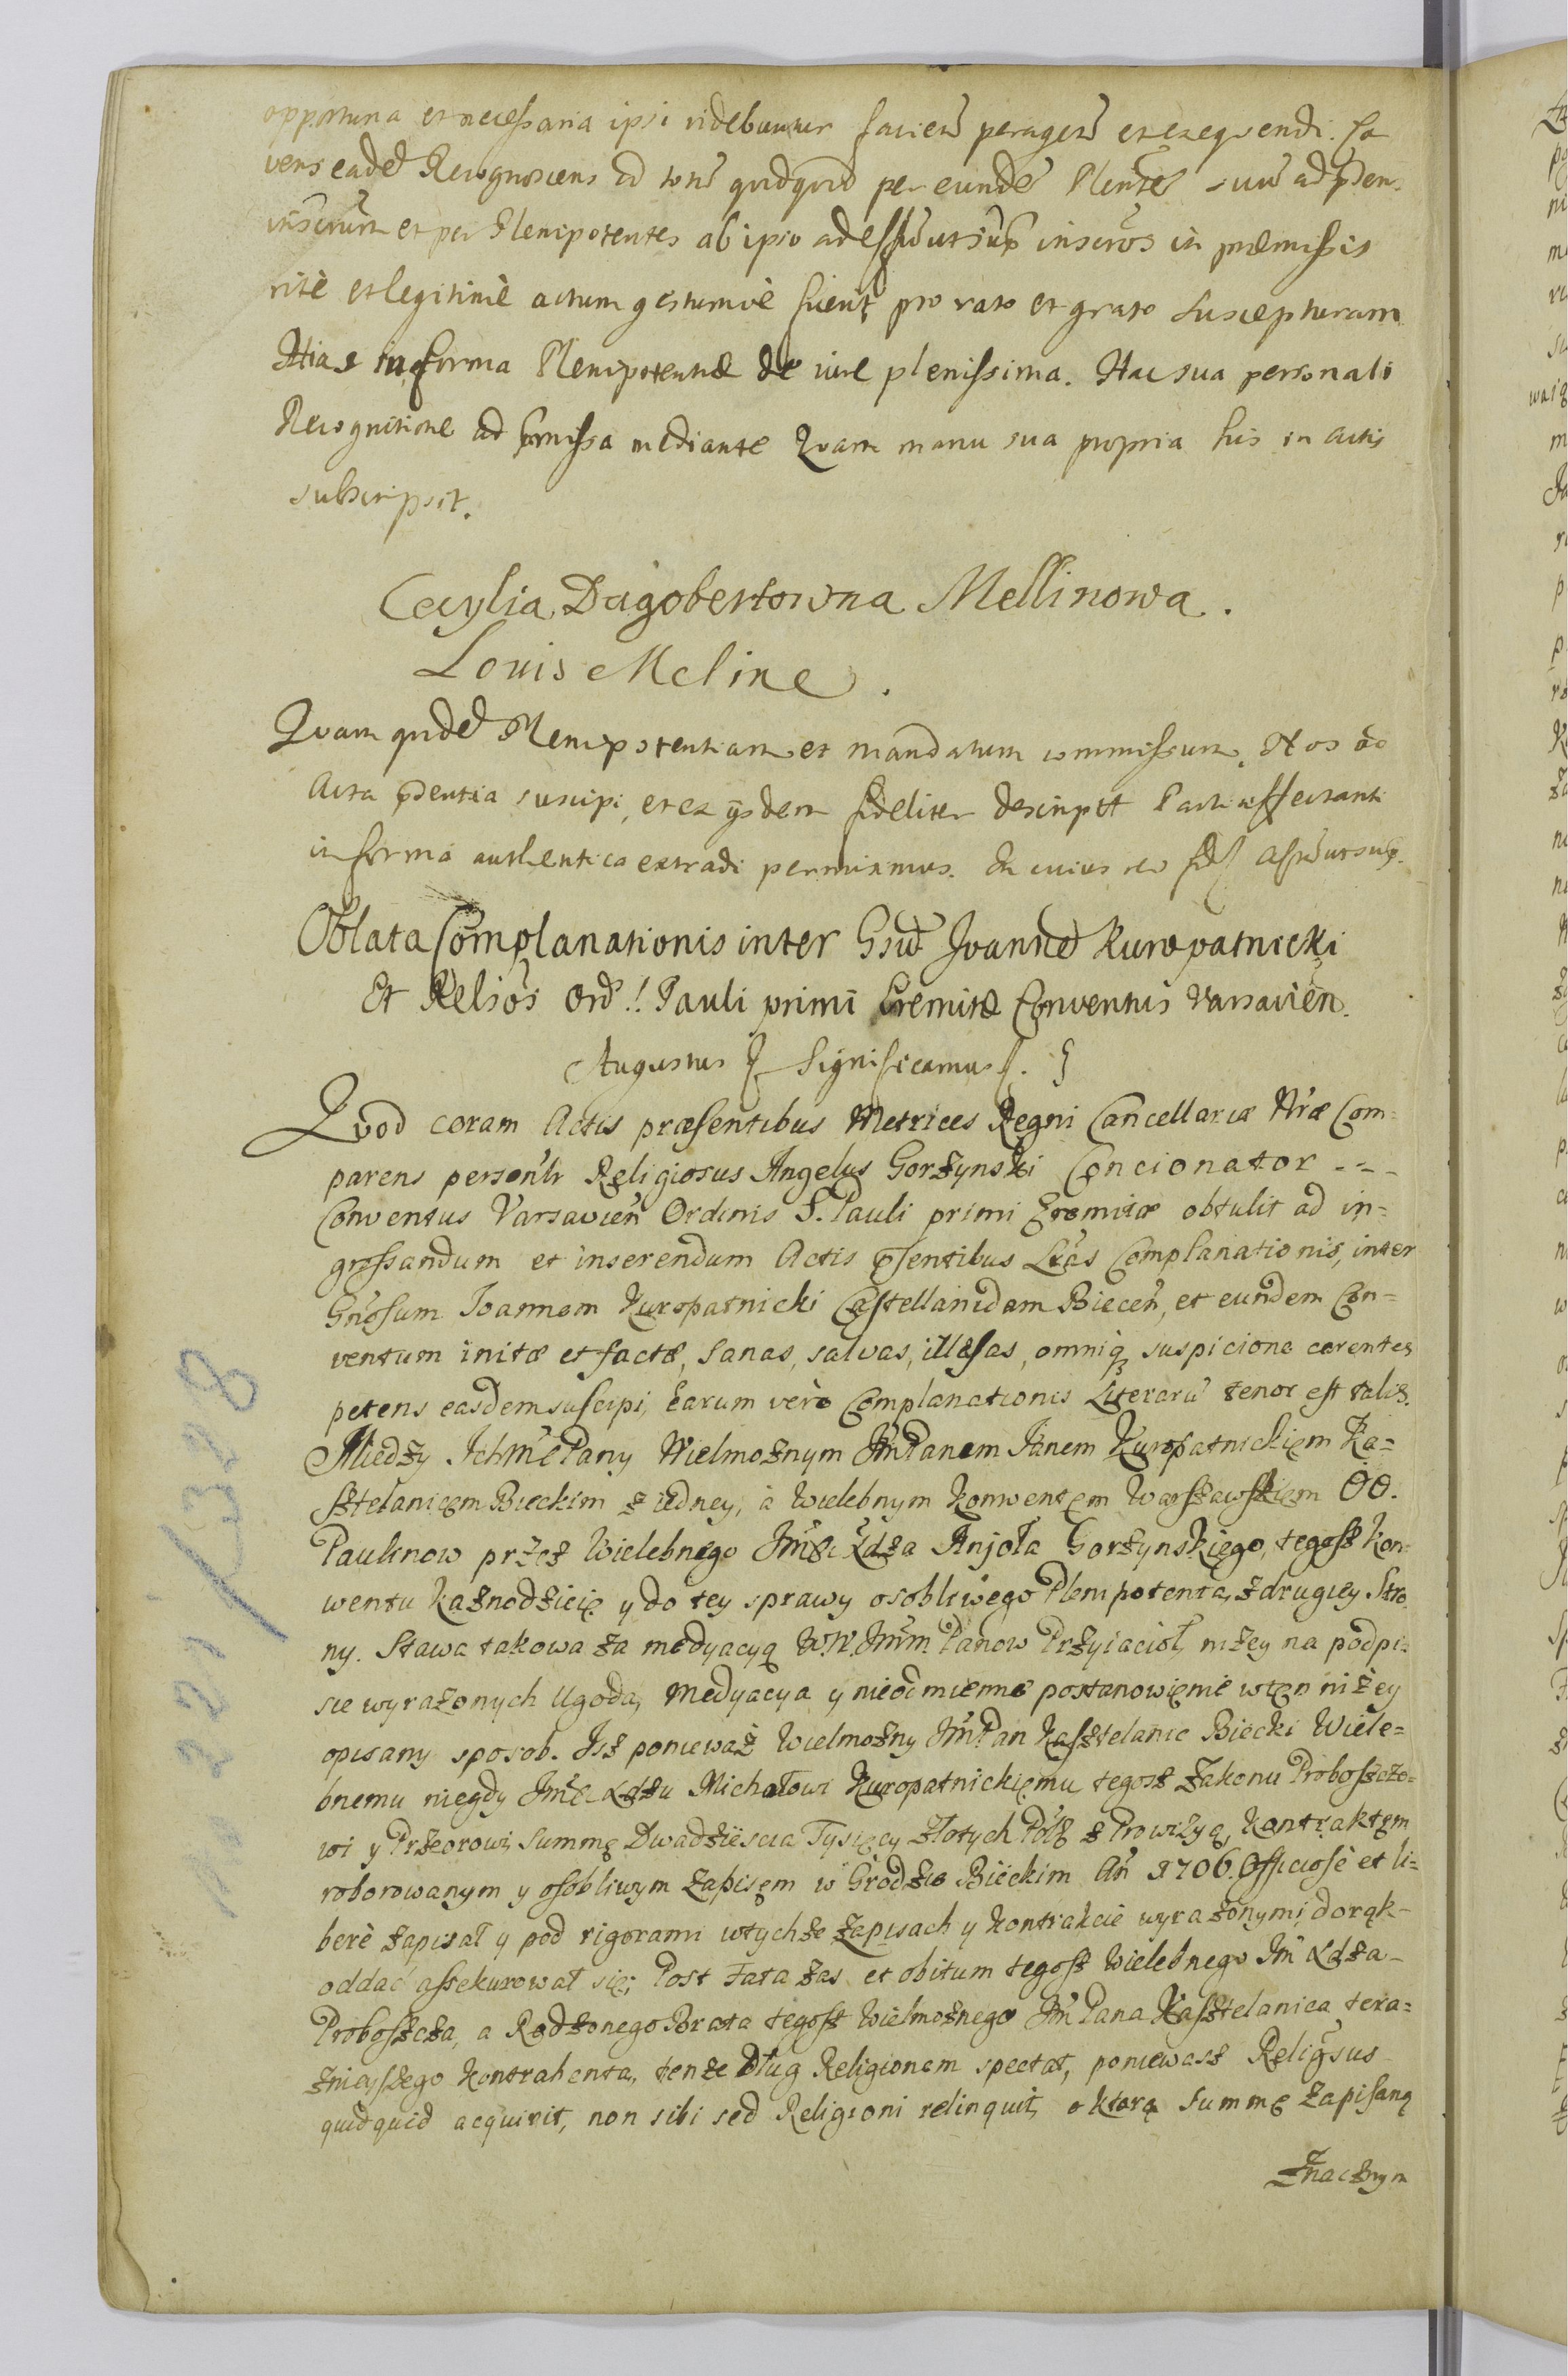 opportuna et necessaria ipsi videbuntur faciend peragend et exequendi. Ca
vens eadē Recognoscens id totū quidquid per eundē Plentē suū ad p̄sens
inscrūm et per Plenipotentes ab ipso ad effm̄ ut sup̄ inscrōs in præmissis
ritè et legitimè actum gestumvè fuerit pro rato et grato suscepturam
Itias in forma Plenipotentiæ de iure plenissima. Hac sua personali
Recognitione ad p̄missa mediante Quam manu sua propria his in actis
subscripsit.
Cecylia Dagobertowna Mellinowa.
Louis Meline.
Quam quidē Plenipotentiam et mandatum commissum, Nos ad
Acta p̄sentia suscipi, et ex ijsdem fideliter descriptt Parti affectanti
in forma authentica extradi permisimus. In cuius rei fid
Oblata Complanationis inter Gsum Joannē Kuropatnicki
Et Relsōs Ord: S. Pauli primi Eremitæ Conventus Varsavien.
Augustus Significamus
Quod coram Actis præsentibus Metrices Regni Cancellariæ Nræ Com=
parens person̄lr Religiosus Angelus Gorzynski Concionator ---
Conventus Varsavien̄ Ordinis S. Pauli primi Eremitæ obtulit ad in=
grossandum et inserendum Actis p̄sentibus Lrās Complanationis, inter
Gn̄osum Joannem Kuropatnicki Castellanidam Biecen̄, et eundem Con=
ventum initæ et factæ, sanas, salvas, illæsas, omniq; suspicione carentes
petens easdem suscipi, Earum verò Complanationis Literarū tenor est talis.
Miedzy Ichm̄c Pany Wielmożnym Jm̄ Panem Janem Kuropatnickięm Ka=
sztelanicęm Bieckim z iedney, à Wielebnym konwentęm Warszawskięm OO.
Paulinow przez Wielebnego Jm̄c Xdza Anjoła Gorzynskięgo, tegosz kon=
wentu kaznodzieię y do tey sprawy osobliwego Plenipotenta, z drugiey Stro
ny. Stawa takowa za medyacyą W.W. Jm̄m. Panow Przyiacioł, niżey na podpi=
sie wyrażonych Ugoda, medyacya y nieodmienne postanowięnie wtęn niżey
opisany sposob. Isz poniewaz Wielmożny Jm̄ Pan Kasztelanic Biecki Wiele=
bnemu niegdy Jm̄c Xdzu Michałowi Kuropatnickięmu tegosz Zakonu Proboszczo=
wi y Przeorowi, Summę Dwadzieścia Tysięcy złotych Polz z Prowizyą, kontraktęm
roborowanym y osobliwym zapisęm w Grodzie Bieckim An̄ 1706. Officiosè et li=
berè zapisał y pod rigorami wtychże zapisach y kontrakcie wyrażonymi, do rąk-
oddać assekurował się; Post Fata zas et obitum tegosz Wielebnego Jm̄ Xdza-
Proboszcza, a Rodzonego Brata tegosz Wielmożnego Jm̄ Pana Kasztelanica tera=
znieyszego kontrahenta, tenże Dług Religionem spectat, poniewasz Religōsus
quidquid acquirit, non sibi sed Religioni relinquit, o ktorą Summę Zapisaną
Znacznym